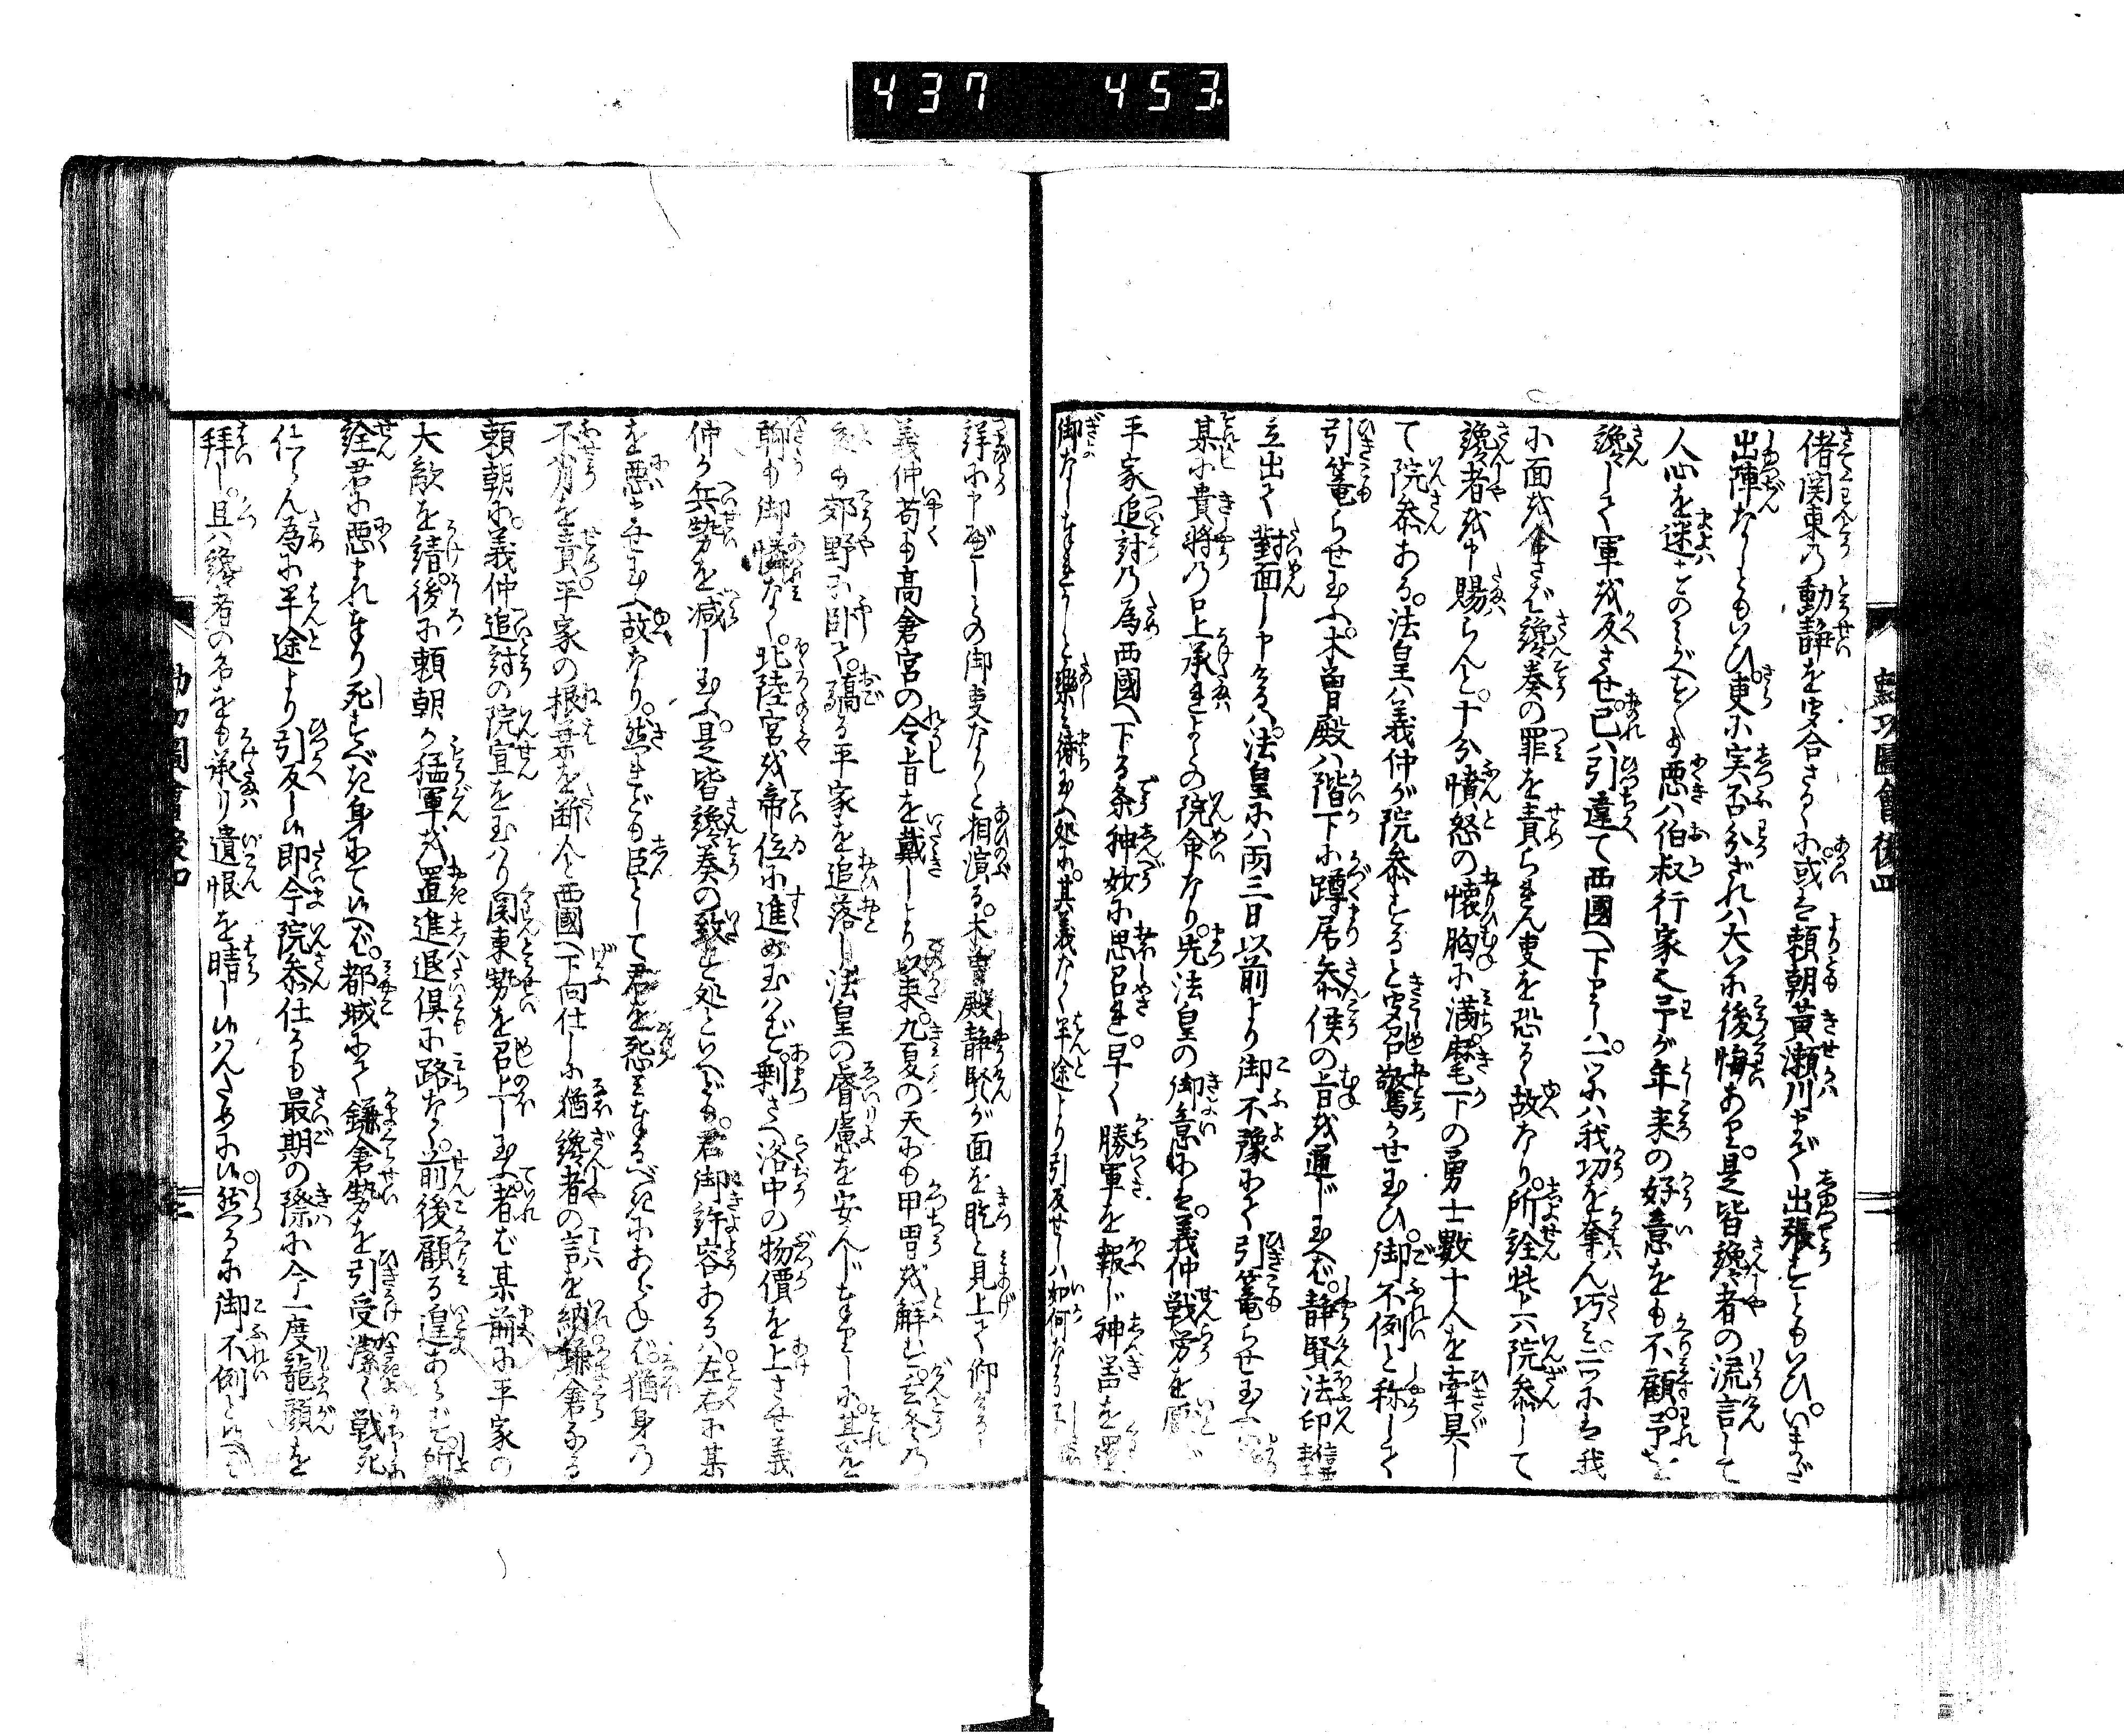 437 453
勲功圖會後四
偖関東の動静を聞合さるゝに或は頼朝黄瀬川まで出張せしともいひいまだ
出陣なしともいひ更に実否分ざれバ大いに後悔あり是皆讒者の流言して
人心を迷はせ
悪ハ伯叔行家也予が年来の好意をも不顧予を
讒して軍を反させ己ハ引違て西國へ下りしハ一ツにハ我功を奪ん巧ミ二ツにハ我
に面を合さバ讒奏の罪を責られん事を恐るゝ故なり所詮此上ハ院参して
讒者を申賜らんと十分憤怒の懐胸に満麾下の勇士數十人を牽具し
て院参ある法皇ハ義仲が院参せると聞召驚かせ玉ひ御不例と称して
引篭らせ玉ふ木曽殿ハ階下に蹲居参候の旨を通じ玉へバ静賢法印
立出て對面し申さるハ法皇にハ両三日以前より御不豫にて引篭らせ玉ふ
某に貴将の口上承れよとの院命なり先法皇の御意にハ義仲戦労を厭
平家追討の為西國へ下る条神妙に思召れ早く勝軍を報じ神器を
御なし奉れかしと樂ミ待玉ふ処に其義なく半途より引反せしハ如何なる
詳に申べしとの御事なりと相演る木曽殿静賢が面を屹と見上て仰らるハ
義仲苟も高倉宮の令旨を戴しより以来九夏の天にも甲冑を解ず玄冬の
夜も郊野に臥て驕る平家を追落し法皇の叡慮を安んじ奉りしに其を
聊も御憐なく北陸宮を帝位に進め玉ハず剰さへ洛中の物價を上させ義
仲が兵勢を減し玉ふ是皆讒奏の致す処といへども君御許容あるハ左右に某
を悪ませ玉へ故なり然れども臣として君を怨ミ奉るべきにあらねバ猶身の
不肖を責平家の根葉を断んと西國へ下向仕しに猶讒者の言を納鎌倉なる
頼朝に義仲追討の院宣を玉ハり関東勢を召上し玉ふ者バ某前に平家の
大敵を請後に頼朝が猛軍を置進退倶に路なく前後顧る遑あらず所
詮君に悪まれ奉り死すべき身にて候へバ都城にて鎌倉勢を引受潔く戦死
仕らん為に半途より引反し候即今院参仕るも最期の際に今一度龍顔を
拜し且ハ讒者の名をも承り遺恨を晴し候ハんために候然るに御不例と候へ